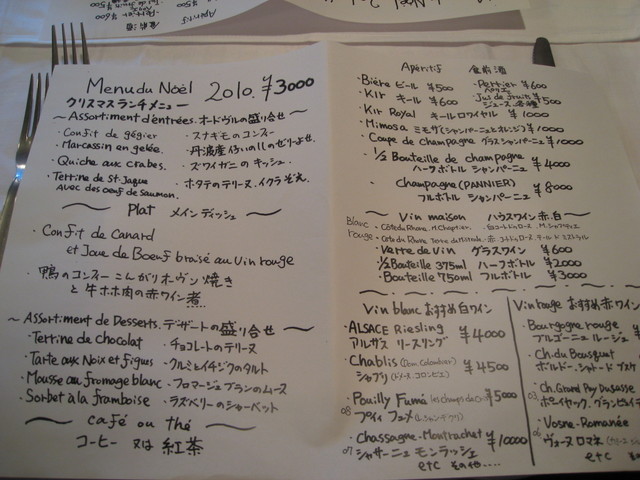 Menu du Noël 2010. ¥3000
クリスマスランチメニュー
～Assortiment d'éntrées. オードヴルの盛り合せ～
・Confit de gégier ・スナギモのコンフィ
・Marcassin en gelée. ・丹波産仔いのししのゼリーよせ.
・Quiche aux crabes. ・ズワイガニの キッシュ.
・Terrine de St-Jaque avec des oeuf de Saumon. ・ホタテのテリーヌ.イクラ添え.
～ Plat メインディッシュ ～
・Confit de Canard
et Joue de Boeuf braisé au Vin rouge
・鴨のコンフィー こんがりオーヴン焼き
と 牛ホホ肉の赤ワイン煮
～Assortiment de Desserts. デザートの盛り合せ～
・Terrine de chocolat ・チョコレートのテリーヌ
・Tarte aux Noix et figues ・クルミとイチジクのタルト
・Mousse au fromage blanc ・フロマージュブランのムース
・Sorbet à la framboise ・ラズベリーのシャーベット
～ café ou thé ～
コーヒー 又は 紅茶
Apéritif 食前酒
・Bière ビール ¥500
・Perrier ペリエ ¥600
・Kir キール ¥600
・Jus de fruits ジュース 各種 ¥500
・Kir Royal キール ロワイヤル ¥1000
・Mimosa ミモザ(シャンパーニュとオレンジ) ¥1000
・Coupe de champagne グラスシャンパーニュ ¥1000
・½ Bouteille de champagne ハーフボトル シャンパーニュ ¥4000
・champagne (PANNIER) フルボトル シャンパーニュ ¥8000
～ Vin maison ハウスワイン 赤.白 ～
blanc
rouge
・Verre de Vin グラスワイン ¥600
・½ Bouteille 375ml ハーフボトル ¥2000
・Bouteille 750ml フルボトル ¥3000
Vin blanc おすすめ白ワイン
・ALSACE Riesling アルザス リースリング ¥4000
・Chablis (Dom. Colombier) シャブリ (ドメーヌ.コロンビエ) ¥4500
・Pouilly Fumé 08 プイィ フュメ ¥5000
・Chassagne-Montrachet 07 シャサーニュ モンラッシェ ¥10000
etc その他....
Vin rouge おすすめ 赤ワイン
・Bourgogne rouge ブルゴーニュ ルージュ ¥
・Ch. du Bousquet ボルドー.シャトー ブスケ
・Ch. Grand Puy Ducasse 03 ポーイヤック.グランピュイデ
・Vosne-Romanée 06 ヴォーヌ ロマネ
etc その他